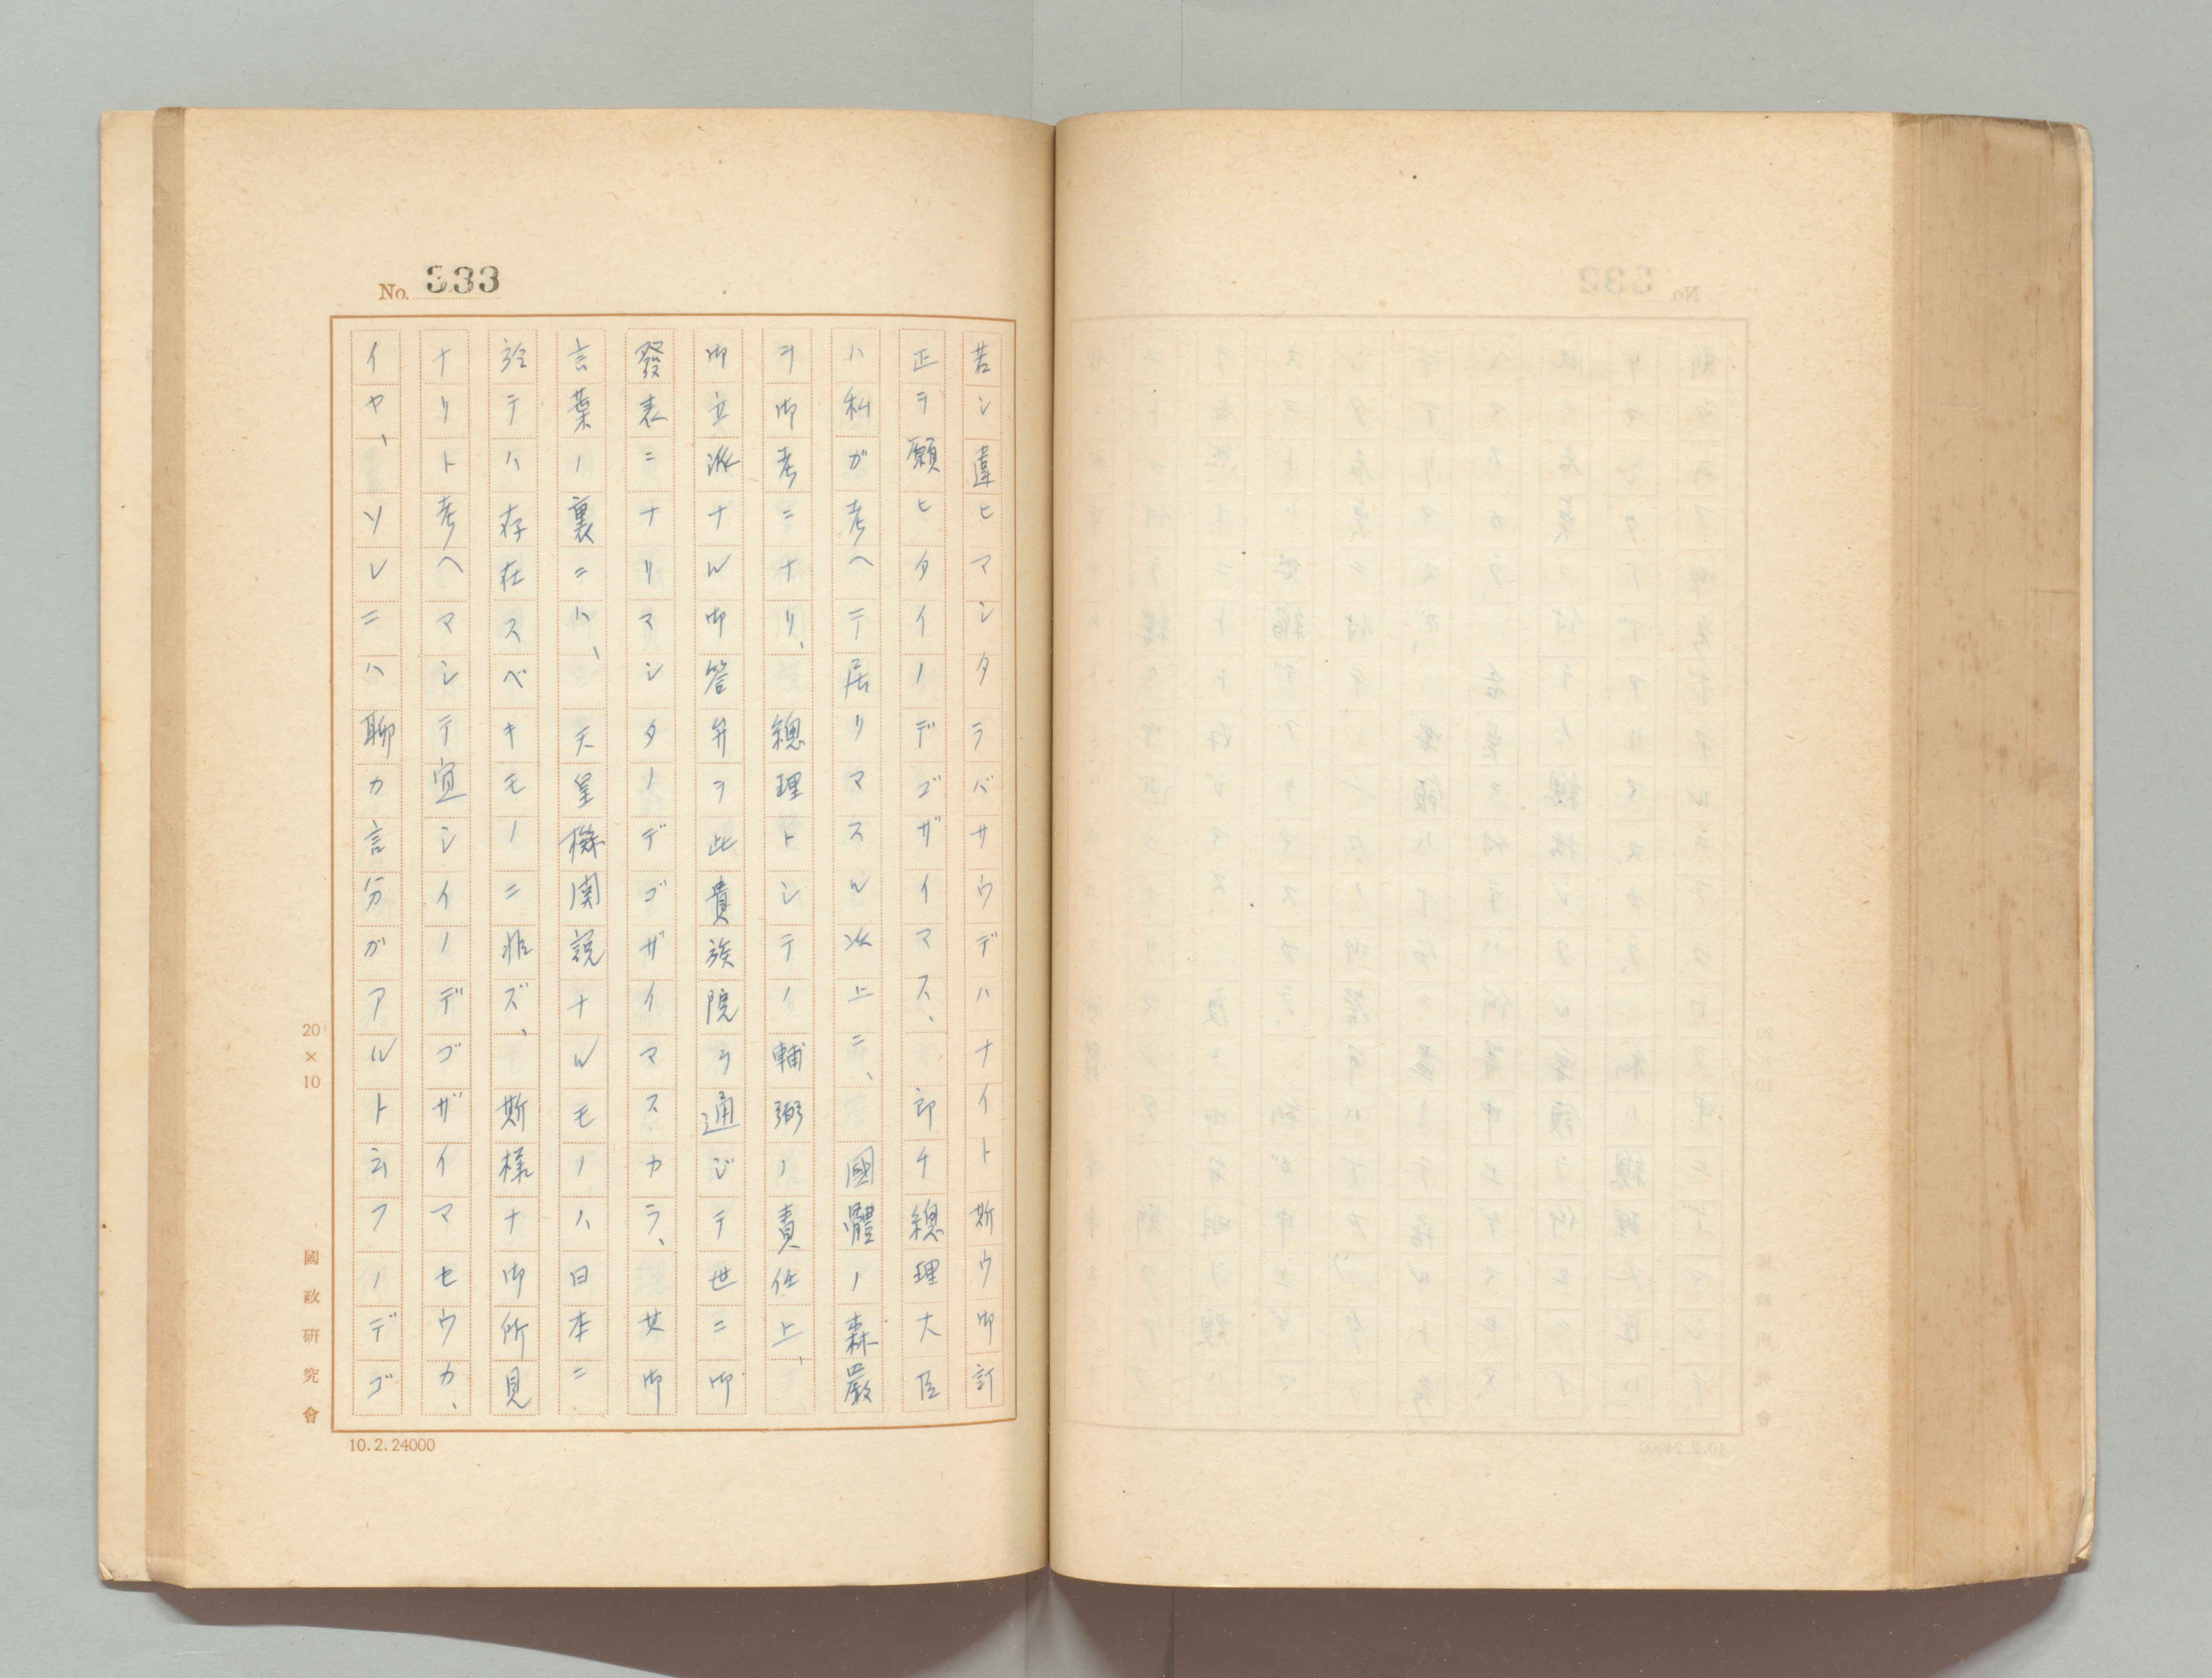 No. 333
若シ違ヒマシタラバサウデハナイト斯ウ御訂
正ヲ願ヒタイノデゴザイマス、即チ總理大臣
ハ私ガ考ヘテ居リマスル以上ニ、國體ノ森嚴
ヲ御考ニナリ、總理トシテノ輔弼ノ責任上、
御立派ナル御答弁ヲ此貴族院ヲ通ジテ世ニ御
發表ニナリマシタノデゴザイマスカラ、其御
言葉ノ裏ニハ、天皇機関説ナルモノハ日本ニ
於テハ存在スベキモノニ非ズ、斯様ナ御所見
ナリト考ヘマシテ宜シイノデゴザイマセウカ、
イヤ、ソレニハ聊カ言分ガアルト云フノデゴ
20×10
國政研究會
10.2.24000